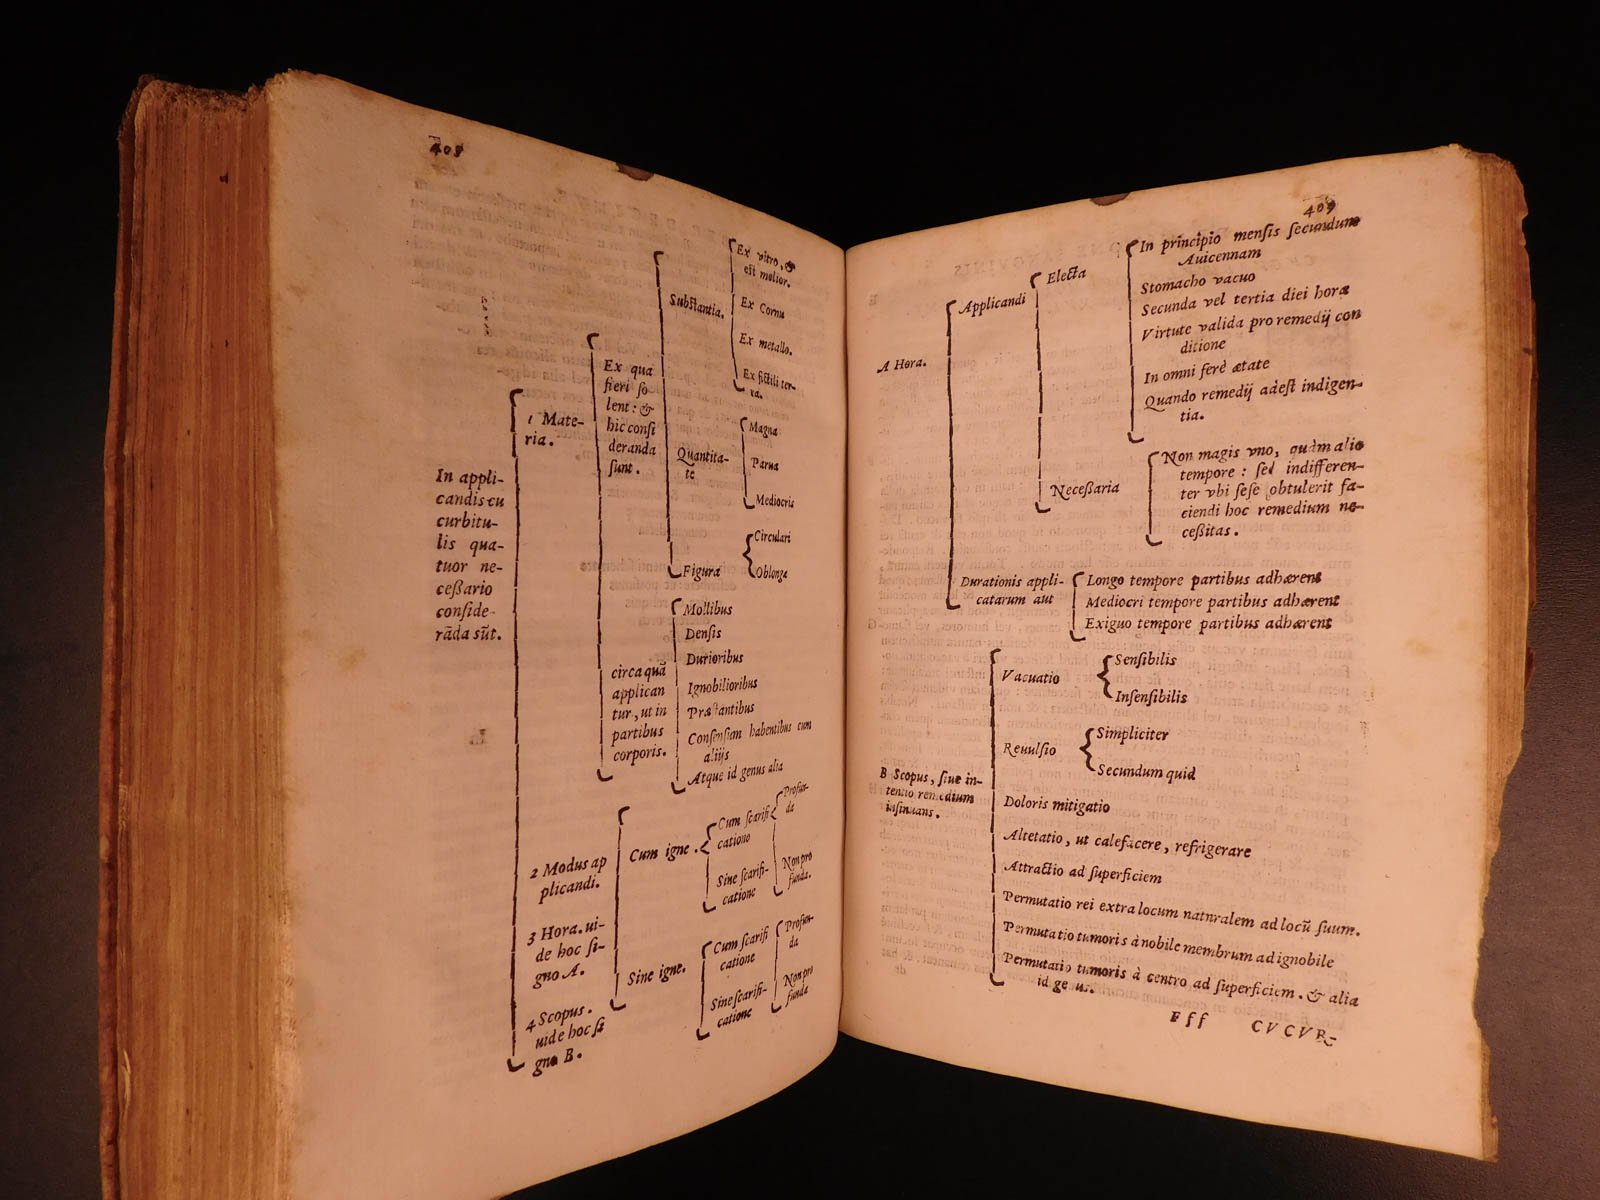 408
In appli-
candis cu
curbitu-
lis qua-
tuor ne-
ceßario
conside-
rãda sũt.
1 Mate-
ria.
Ex qua
fieri so
lent: &
hic consi
deranda
sunt.
Substantia.
Ex vitro, &
est melior.
Ex Cornu
Ex metallo.
Ex fictili ter-
ra.
Quantita-
te
Magna
Parua
Mediocris
Figura
Circulari
Oblonga
circa quã
applican
tur, ut in
partibus
corporis.
Mollibus
Densis
Durioribus
Ignobilioribus
Præstantibus
Consensum habentibus cum
aliijs
Atque id genus alia
2 Modus ap
plicandi.
Cum igne.
Cum scarifi
catione
Profun-
da
Sine scarifi-
catione
Non pro
funda.
Sine igne.
Cum scarifi
catione
Profun-
da
Sine scarifi-
catione
Non pro
funda
3 Hora. ui-
de hoc si-
gno A.
4 Scopus.
uide hoc si
gno B.
409
A Hora.
Applicandi
Electa
In principio mensis secundum
Auicennam
Stomacho vacuo
Secunda vel tertia diei hora
Virtute valida pro remedij con
ditione
In omni ferè ætate
Quando remedij adest indigen-
tia.
Neceßaria
Non magis vno, quàm alio
tempore: sed indifferen-
ter vbi sese obtulerit fa-
ciendi hoc remedium ne-
ceßitas.
Durationis appli-
catarum aut
Longo tempore partibus adhærent
Mediocri tempore partibus adhærent
Exiguo tempore partibus adhærent
B Scopus, siue in-
tentio remedium
insinuans.
Vacuatio
Sensibilis
Insensibilis
Reuulsio
Simpliciter
Secundum quid
Doloris mitigatio
Altetatio, ut calefacere, refrigerare
Attractio ad superficiem
Permutatio rei extra locum naturalem ad locũ suum.
Permutatio tumoris à nobile membrum ad ignobile
Permutatio tumoris à centro ad superficiem. & alia
id genus.
Fff CVCVR-